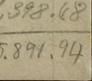 ,398.68
5.891.94